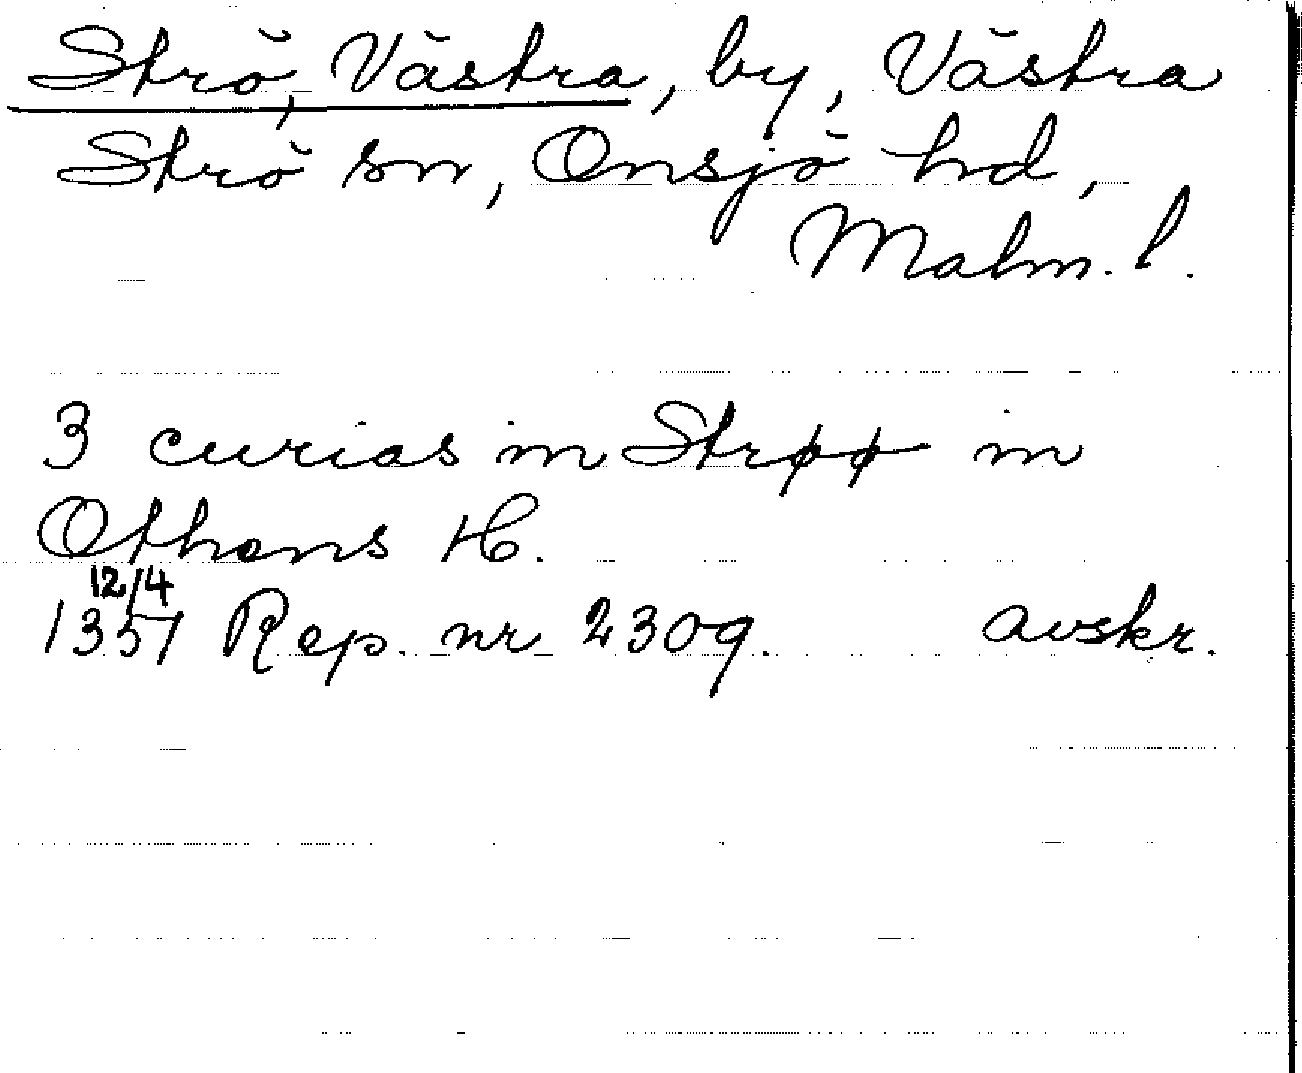 Strö, Västra, by, Västra
Strö sn, Onsjö hd,
Malm. l.
3 curias in Strøø in
Othens H.
12/4
1351 Rep. nr 2309. avskr.